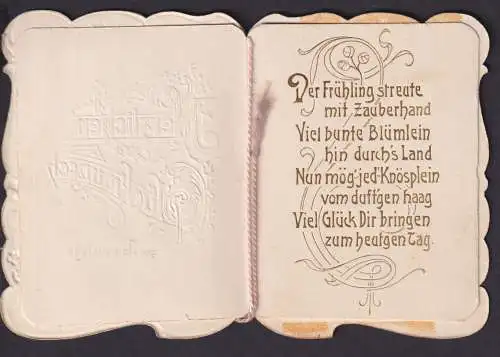 Der Frühling streute
mit Zauberhand
Viel bunte Blümlein
hin durch's Land
Nun mög' jed' Knösplein
vom duft'gen Haag
Viel Glück Dir bringen
zum heut'gen Tag.